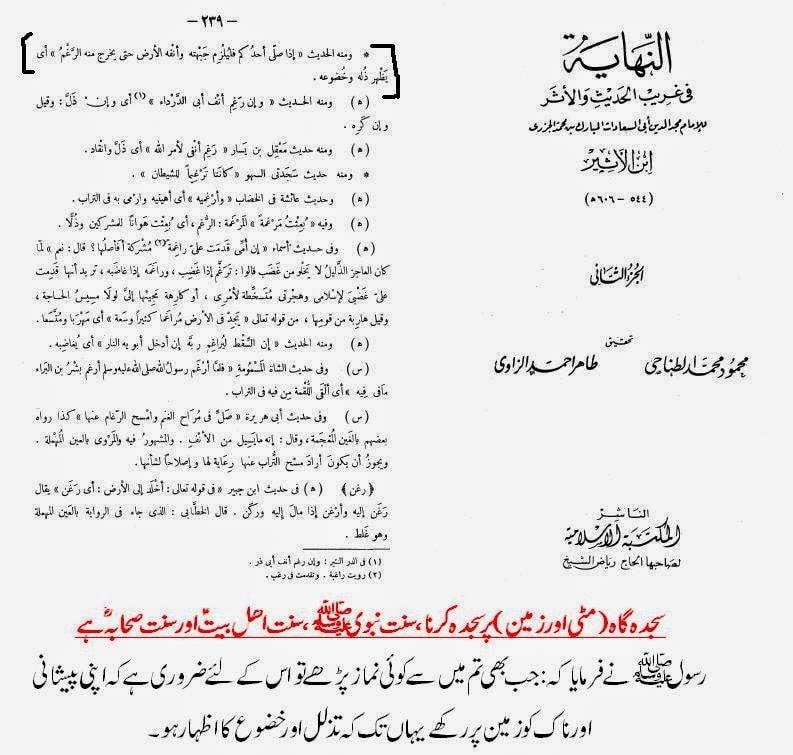 — ٢٣٩ —
* ومنه الحديث « إذا صلّى أحدكم فليُلْزِم جَبْهته وأنْفه الأرض حتى يخرج منه الرَّغْمُ » أى
يَظْهر ذُلّه وخُضوعه .
( ه ) ومنه الحديث « وإن رَغِم أنف أبى الدَّرْداء » (١) أى وإن ذَلَّ : وقيل
وإن كَرِه .
( ه ) ومنه حديث مَعْقِل بن يَسار « رَغِم أنْفى لأمر الله » أى ذَلّ وانقاد .
* ومنه حديث سَجدَتى السهو « كانَتا تَرْغيماً للشيطان » .
( ه ) وحديث عائشة فى الخضاب « وأرْغِميه » أى أهِينيه وارْمى به فى التراب .
( ه ) وفيه « بُعِثْتُ مَرْغَمةً » المَرْغَمة : الرَّغم ، أى بُعِثْت هَواناً للمشركين وذُلاًّ .
( ه ) وفى حديث أسماء « إن أمِّى قَدِمَت علىّ راغِمةً (٢) مُشْركة أفأصِلُها ؟ قال : نعم » لمّا
كان العاجز الذَّليل لا يَخْلو من غَضَب قالوا : تَرَغَّم إذا غَضِب ، وراغَمه إذا غاضَبه ، تريد أنها قَدِمت
علىّ غَضْبَى لإسلامى وهِجْرتى مُتَسخِّطة لأمْرى ، أو كارِهة مَجيئها إلىّ لولا مسيسُ الحاجة ،
وقيل هاربة من قومها ، من قوله تعالى « يَجِدْ فى الأرض مُراغَما كثيراً وسعة » أى مَهْرَبا ومُتَّسعا .
( ه ) ومنه الحديث « إن السِّقْط ليُراغِم ربَّه إن أدخل أبويه النار » أى يُغاضِبه .
( س ) وفى حديث الشاة المَسْمُومةِ « فلمَّا أرْغَم رسولُ الله صلى الله عليه وسلم أرغم بِشْرُ بن البَراء
مافى فِيه » أى ألْقى اللُّقْمة مِن فيه فى التراب .
( س ) وفى حديث أبى هريرة « صَلِّ فى مُرَاح الغنم وامْسح الرَّغام عنها » كذا رواه
بعضهم بالغين المُعْجمة ، وقال : إنه مايَسِيل من الأنف . والمشهور فيه والمَرْوِى بالعين المُهْملة .
ويجوزُ أن يكونَ أرادَ مسْح التُّراب عنها رِعاية لها وإصلاحاً لشأنِها .
﴿ رغن ﴾ ( ه ) فى حديث ابن جبير « فى قوله تعالى : أخْلَد إلى الأرض : أى رَغَن » يقال
رَغَن إليه وأرْغن إذا مالَ إليه ورَكَن . قال الخطَّابى : الذى جاء فى الرواية بالعين المهملة
وهو غَلط .
(١) فى الدر النثير : وإن رغم أنف أبى ذر .
(٢) رويت راغبة . وتقدمت فى رغب .
النهاية
فى غريب الحديث والأثر
للإمام مجد الدين أبى السعادات المبارك بن محمد الجزرى
ابن الأثير
( ٥٤٤ – ٦٠٦ ه )
الجزء الثانى
تحقيق
طاهر أحمد الزاوى محمود محمد الطناحى
الناشر
المكتبة الإسلامية
لصاحبها الحاج رياض الشيخ
سجدہ گاہ (مٹی اور زمین) پر سجدہ کرنا، سنت نبوی ﷺ، سنت اھل بیتؑ اور سنت صحابہؓ ہے
رسول ﷺ نے فرمایا کہ: جب بھی تم میں سے کوئی نماز پڑھے تو اس کے لئے ضروری ہے کہ اپنی پیشانی
اور ناک کو زمین پر رکھے یہاں تک کہ تذلل اور خضوع کا اظہار ہو۔